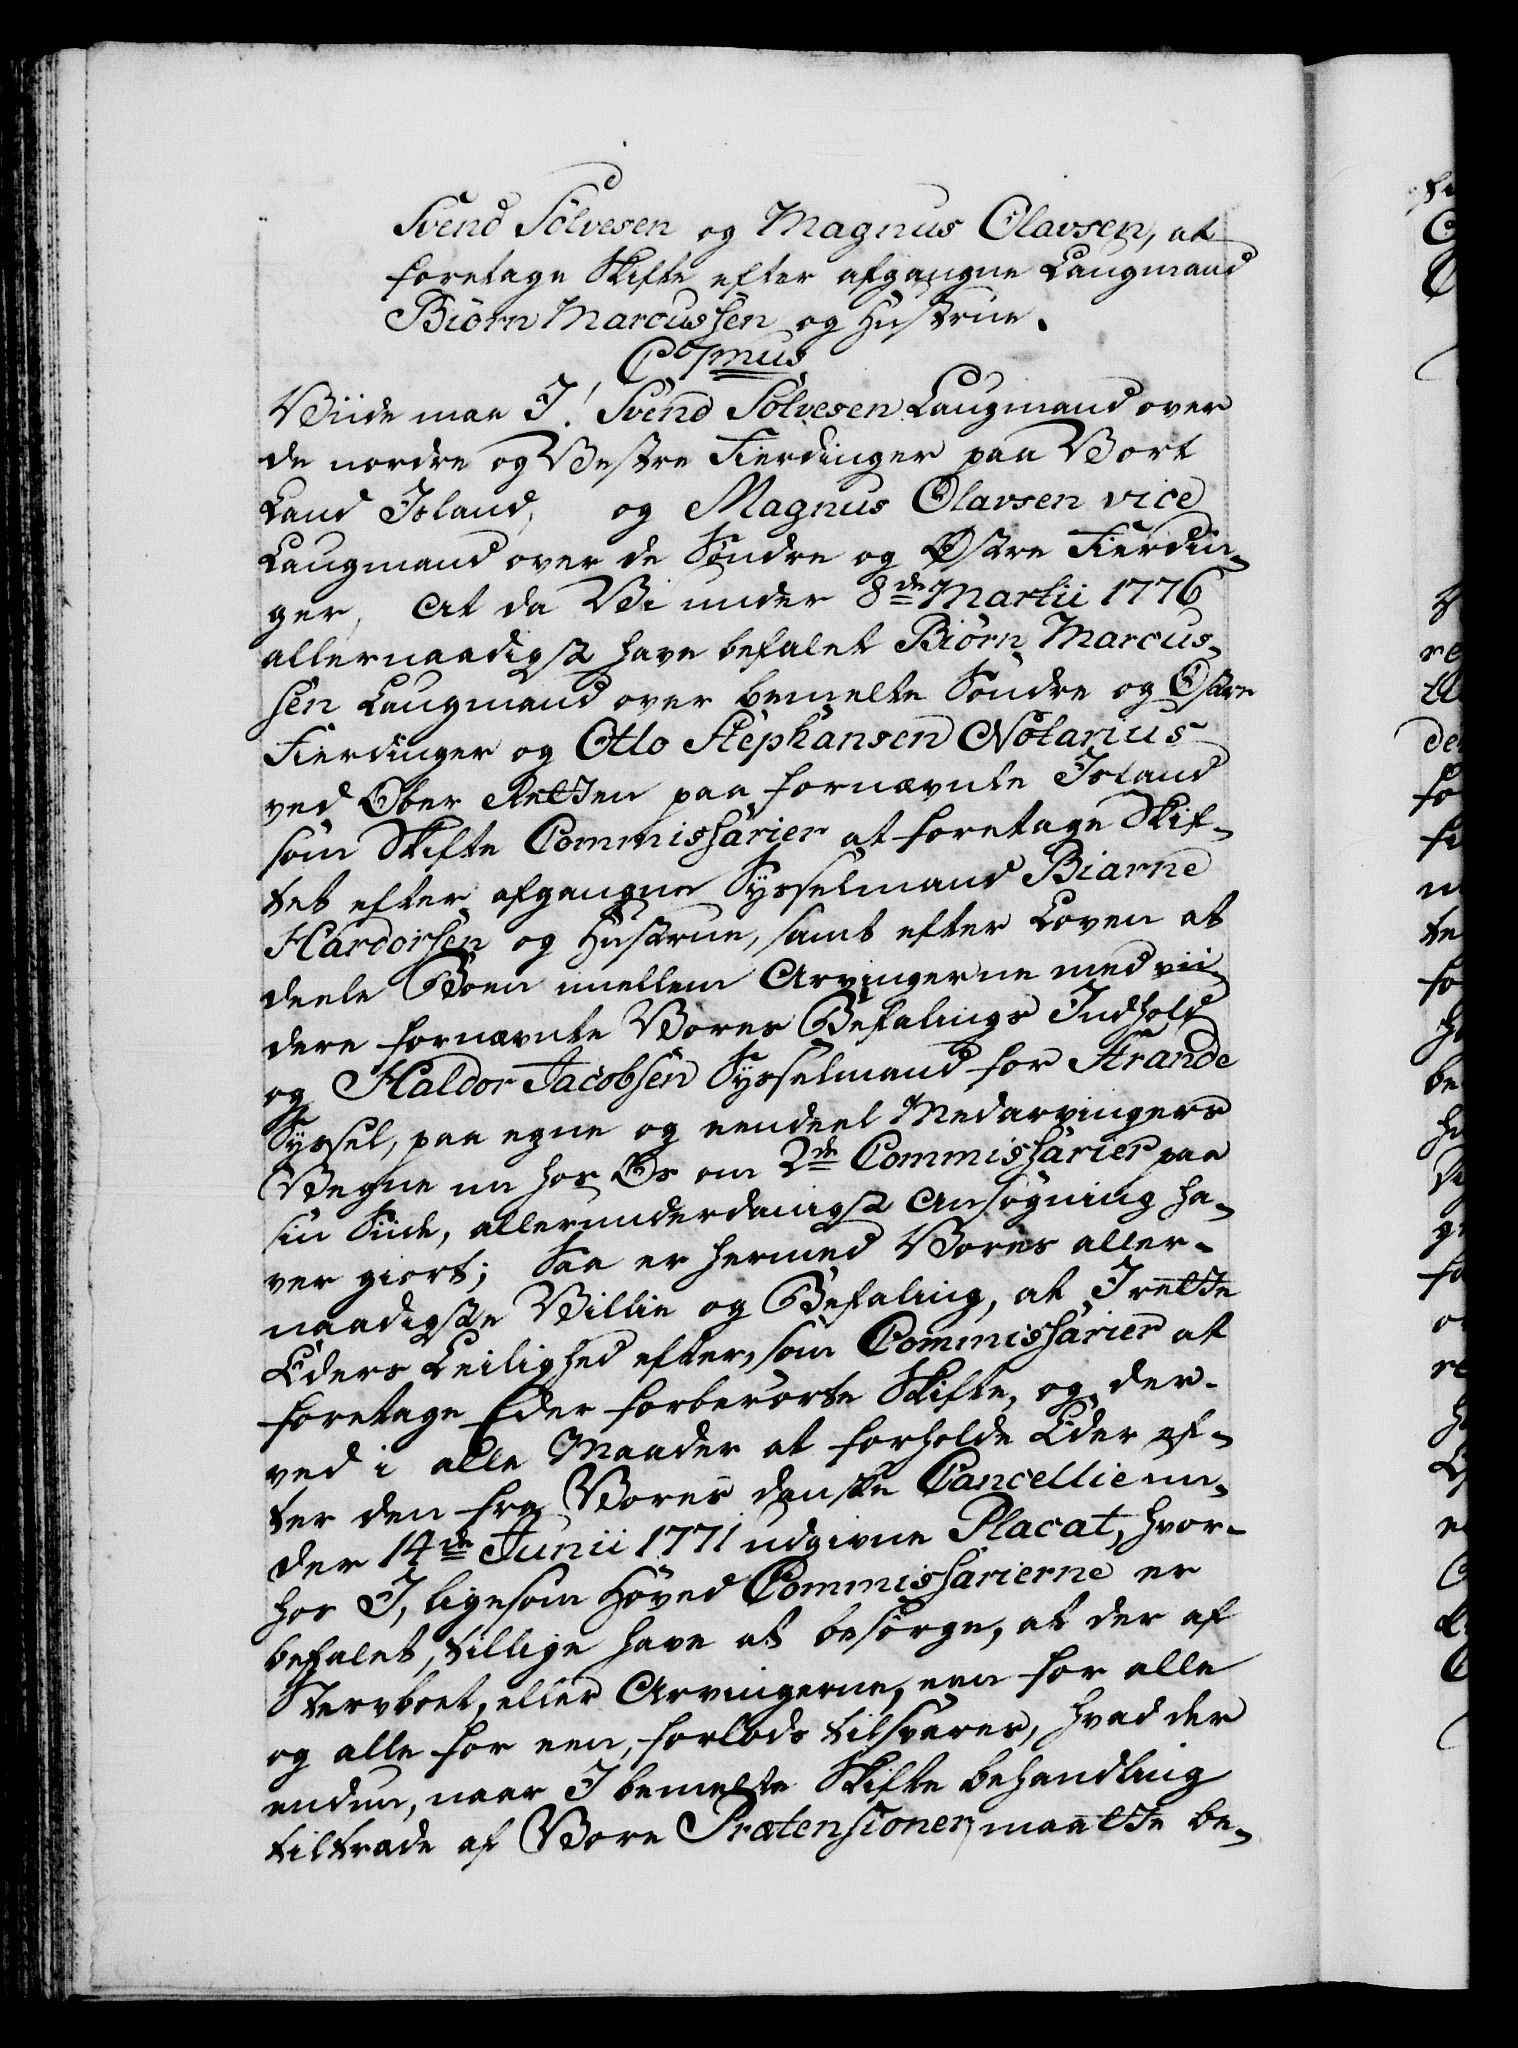 Svend Sölvesen og Magnus Olavsen, at
foretage Skifte efter afgangne Laugmand
Biörn Marcussen og Hustrue.
C7mus
Viide maa I! Svend Sölvesen Laugmand over
de nordre og Vestre Fierdinger paa Vort
Land Island, og Magnus Olavsen vice
Laugmand over de Söndre og Østre Fierdin-
ger, At da Vi under 8de Martii 1776
allernaadigst have befalet Biörn Marcus-
sen Laugmand over bemelte Söndre og Østre
Fierdinger og Otto Stephansen Notarius
ved Ober Retten paa fornævnte Island
som Skifte Commissarier at foretage Skif-
tet efter afgangne Sysselmand Biarne
Hardorsen og Hustrue, samt efter Loven at
deele Boen imellem Arvingerne med vii-
dere fornævnte Vores Befalings Indhold
og Haldor Jacobsen Sysselmand for Strande
Syssel, paa egne og eendeel Medarvingers
Vegne nu hos Os om 2de Commissarier paa
sin Side, allerunderdanigst Ansögning ha-
ver giort; Saa er hermed Vores aller-
naadigste Villie og Befaling, at I rette
Eders Leilighed efter, som Commissarier at
foretage Eder forberörte Skifte, og der-
ved i alle Maader at forholde Eder ef-
ter den fra Vores danske Cancellie un-
der 14de Junii 1771 udgivne Placat, hvor-
hos I, ligesom Hoved Commissarierne er
befalet, tillige have at besörge, at der af
Stervboet, eller Arvingerne, een for alle
og alle for een, forlods tilsvares, hvad der
endnu, naar I bemelte Skifte behandling
tiltræde af Vore Prætensioner, maatte be-